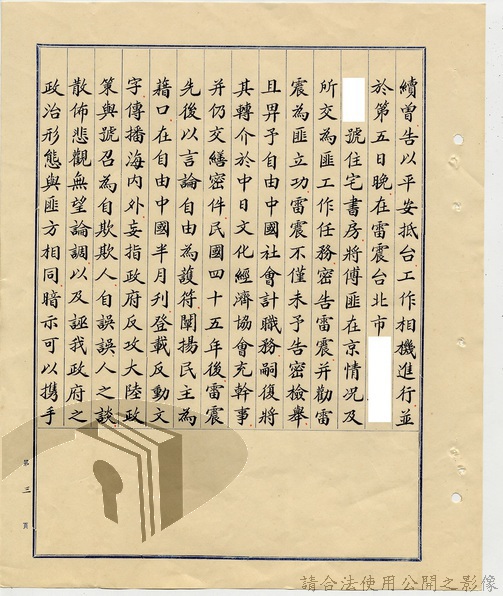 續曾告以平安抵台工作相機進行並
於第五日晚在雷震台北市
號住宅書房將傅匪在京情况及
所交為匪工作任務密告雷震并勸雷
震為匪立功雷震不僅未予告密檢舉
且畀予自由中國社會計職務嗣復將
其轉介於中日文化經濟協會充幹事
并仍交繕密件民國四十五年後雷震
先後以言論自由為護符闡揚民主為
藉口在自由中國半月刊登載反動文
字傳播海內外妄指政府反攻大陸政
策與號召為自欺欺人自誤誤人之談
散佈悲觀無望論調以及誣我政府之
政治形態與匪方相同暗示可以携手
第三頁
請合法使用公開之影像